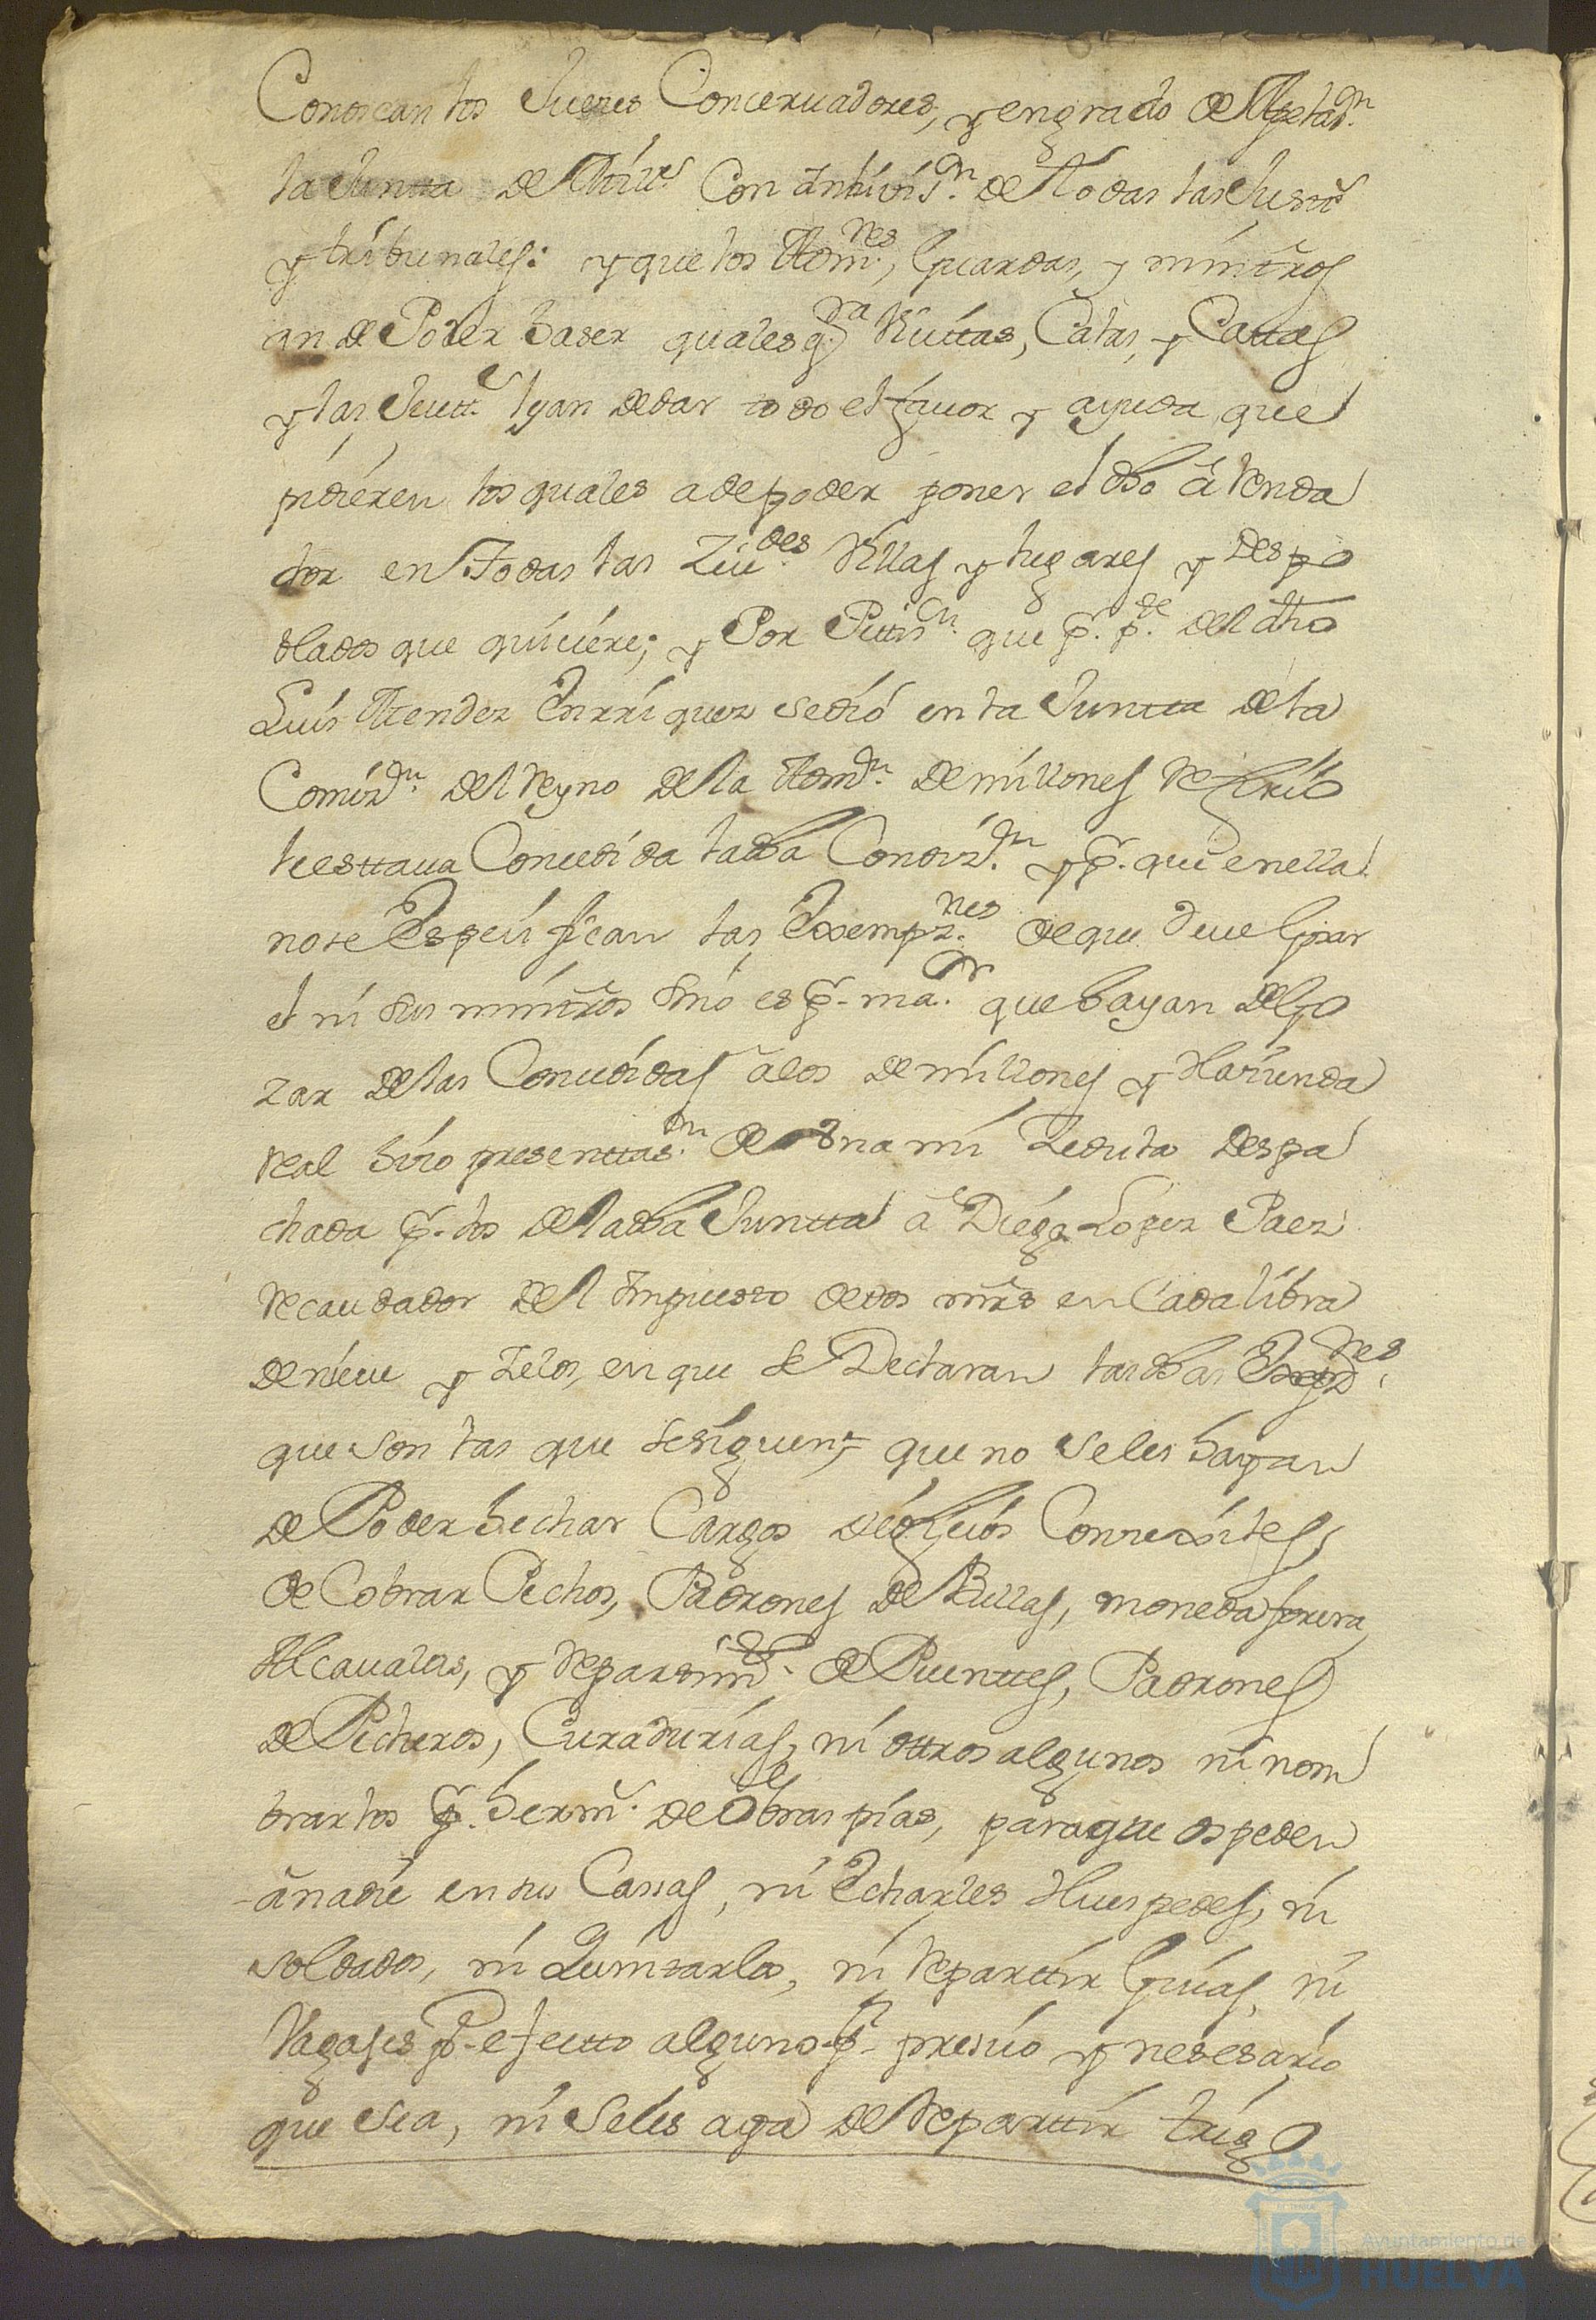 Conoscan los Jueces Conceruadores, y en grado de Apelaon.
la Juntta de Mills. Con Inhiuison. de todas las Justas
y tribunales: y que los Admres., Guardas, y ministros
an de Poder haser quales qra Visittas, Catas, y Cattas
y las Justts. le an de dar todo el fauor y ayuda que
pidieren los quales a de poder poner el dho arrenda
dor en Todas las Ziudes. Villas y lugares y despo
blados que quisiere; y Por Petison. que pr. pte. del dho
Luis Mendez Enrriquez se dió en la Juntta de la
Comizon. del Reyno de la Admon. de millones refirió
le esttaua Concedida la dha Condizon. y pr. que en ella
no se Especifican las Exempznes. de que deue Gosar
el ni sus ministros sino es pr. maor. que hayan de Go
zar de las Concedidas a los de millones y Hazienda
Real hizo presenttason. de vna mi Zedula despa
chada pr. los de la dha Juntta a Diego Lopez Paez
Recaudador del Impuesto de dos mrs en Cada libra
de nieue y Zelos, en que se Declaran las dhas Exempznes.
que son las que se siguen; que no se les hayan
de Poder hechar Cargos de ofizios Concexiles,
de Cobrar Pechos, Padrones de Bullas, moneda forera,
Alcaualas, y repartimtos. de Puenttes, Padrones
de Pecheros, Curadurias, ni ottros algunos ni nom
brarlos pr. hermos. de Obras pias, para que ospeden
a nadie en sus Cassas, ni Echarles Huespedes, ni
soldados, ni Quintarlos, ni Reparttir Guias, ni
Vagajes pa. efectto alguno pr. presiso y nesesario
que sea, ni se les aga de Reparttir trigo
Ayuntamiento de
HUELVA